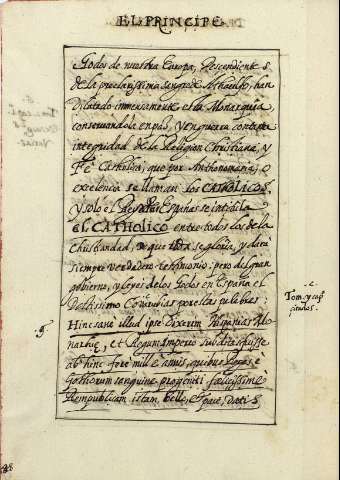 EL PRINCIPE
Godos de nuestra Europa, Descendientes
de la preclarissima sangre de Athaulfo, han
Dilatado immensamente esta Monarquia
conseruandola en paz, y en guerra con tanta
integridad de la Religion Christiana, y
Fè Catholica, que por Anthonomasia, ò
excelencia se llaman los CATHOLICOS,
y solo el Rey de las Españas se intitula
EL CATHOLICO entre todos los de la
Christiandad, de que se gloria, y dara
siempre verdadero testimonio: pero del gran
gobierno, y leyes de los Godos en España el
Doctissimo por estas palabras:
Hinc sane illud ipse Dixerim Hispanias Mo
narchiæ, et Regum Imperio Subditas fuisse
ab hinc fere mille annis, quibus Reges è
Gothorum sanguine progeniti fœlicissimè
Rempublicam istam, bello, et pace, Datis
Tom. y cap.
citados.